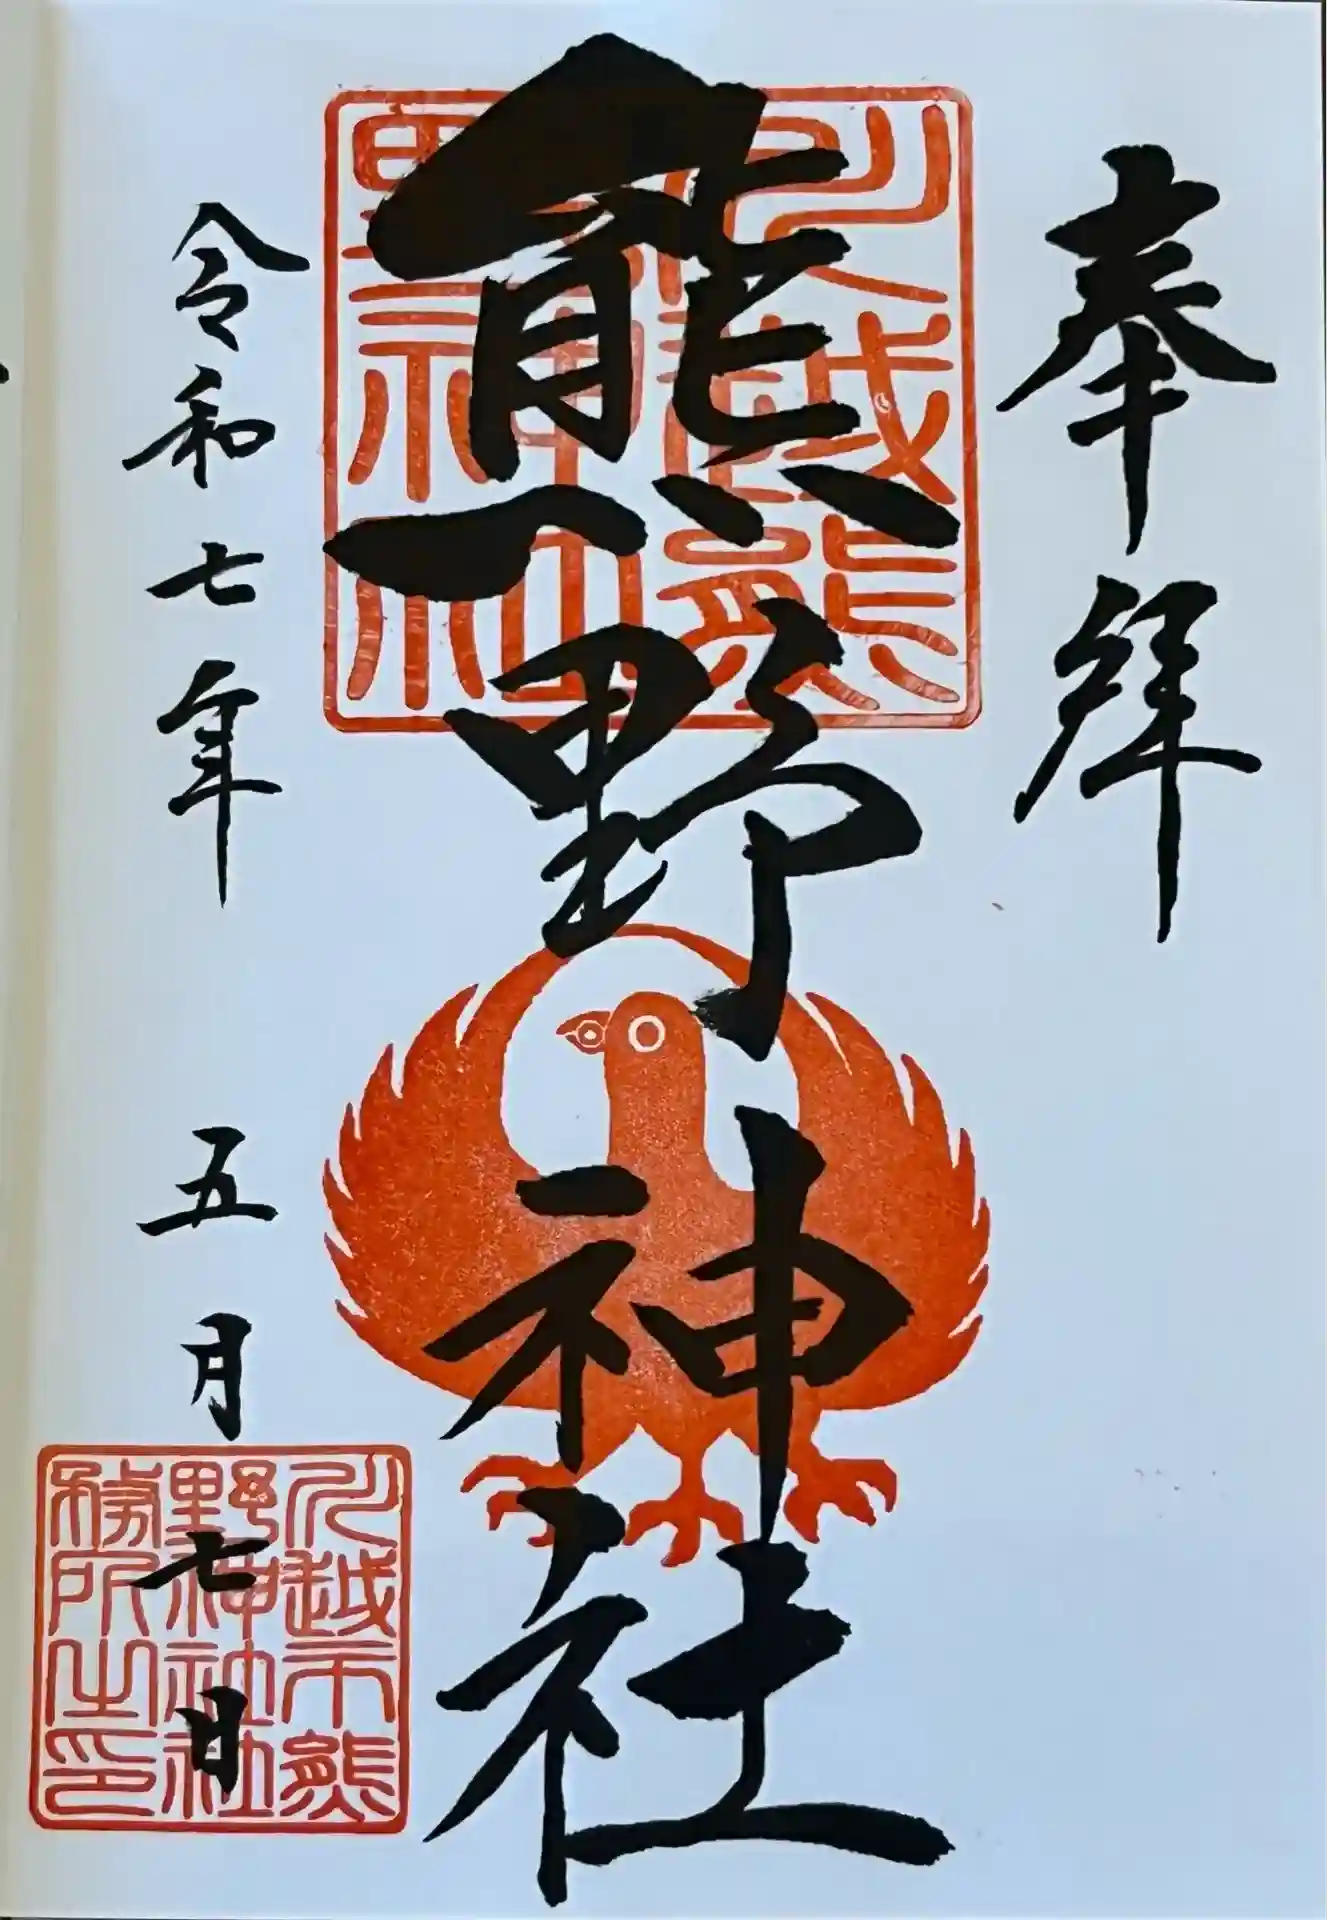 奉拝
川越熊野神社
熊野神社
令和七年 五月 七日
川越市熊
野神社社
務所之印